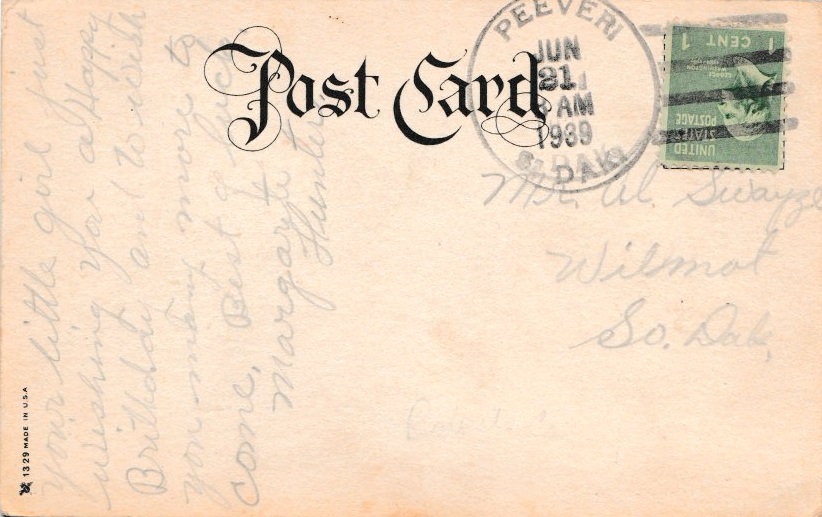 Post Card
PEEVER
JUN
21
AM
1939
S. DAK.
1 CENT 1
UNITED
STATES
POSTAGE
Mr. Al. Swayze
Wilmot
So. Dak.
Your little girl just
wishing you a Happy
Brithday and to wish
you many more to
come. Best of luck
Margaret
Hunter
1329 MADE IN U.S.A